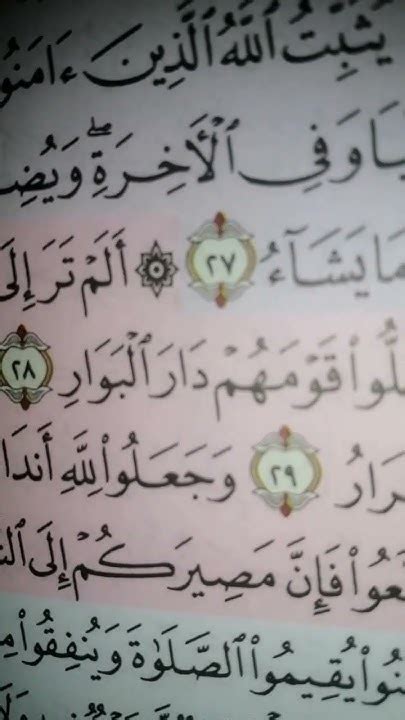 يُثَبِّتُ ٱللَّهُ ٱلَّذِينَ ءَامَنُو
يَا وَفِي ٱلْأٓخِرَةِۖ وَيُضِ
مَا يَشَآءُ ٢٧ ۞ أَلَمْ تَرَ إِلَى
لُّوا۟ قَوْمَهُمْ دَارَ ٱلْبَوَارِ ٢٨
رَارُ ٢٩ وَجَعَلُوا۟ لِلَّهِ أَندَا
تَّعُوا۟ فَإِنَّ مَصِيرَكُمْ إِلَى ٱلنَّ
نُوا۟ يُقِيمُوا۟ ٱلصَّلَوٰةَ وَيُنفِقُوا۟ مِ